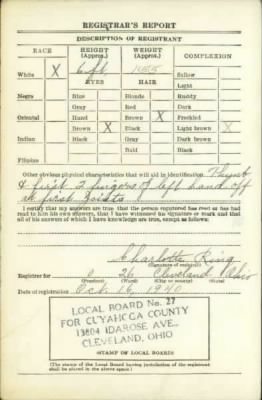 REGISTRAR'S REPORT
DESCRIPTION OF REGISTRANT
RACE HEIGHT (Approx.) WEIGHT (Approx.) COMPLEXION
White X 6 ft. 155 Sallow
EYES HAIR Light
Negro Blue Blonde Ruddy
Gray Red Dark
Oriental Hazel Brown X Freckled
Brown X Black Light brown X
Indian Black Gray Dark brown
Bald Black
Filipino
Other obvious physical characteristics that will aid in identification Thumb
& first 2 fingers of left hand off
at first joints
I certify that my answers are true; that the person registered has read or has had
read to him his own answers; that I have witnessed his signature or mark and that
all of his answers of which I have knowledge are true, except as follows:
Charlotte King
(Signature of registrar)
Registrar for 26 Cleveland Ohio
(Precinct) (Ward) (City or county) (State)
Date of registration Oct. 16, 1940
LOCAL BOARD No. 27
FOR CUYAHOGA COUNTY
13804 IDAROSE AVE.,
CLEVELAND, OHIO
STAMP OF LOCAL BOARD
(The stamp of the Local Board having jurisdiction of the registrant
shall be placed in the above space.)